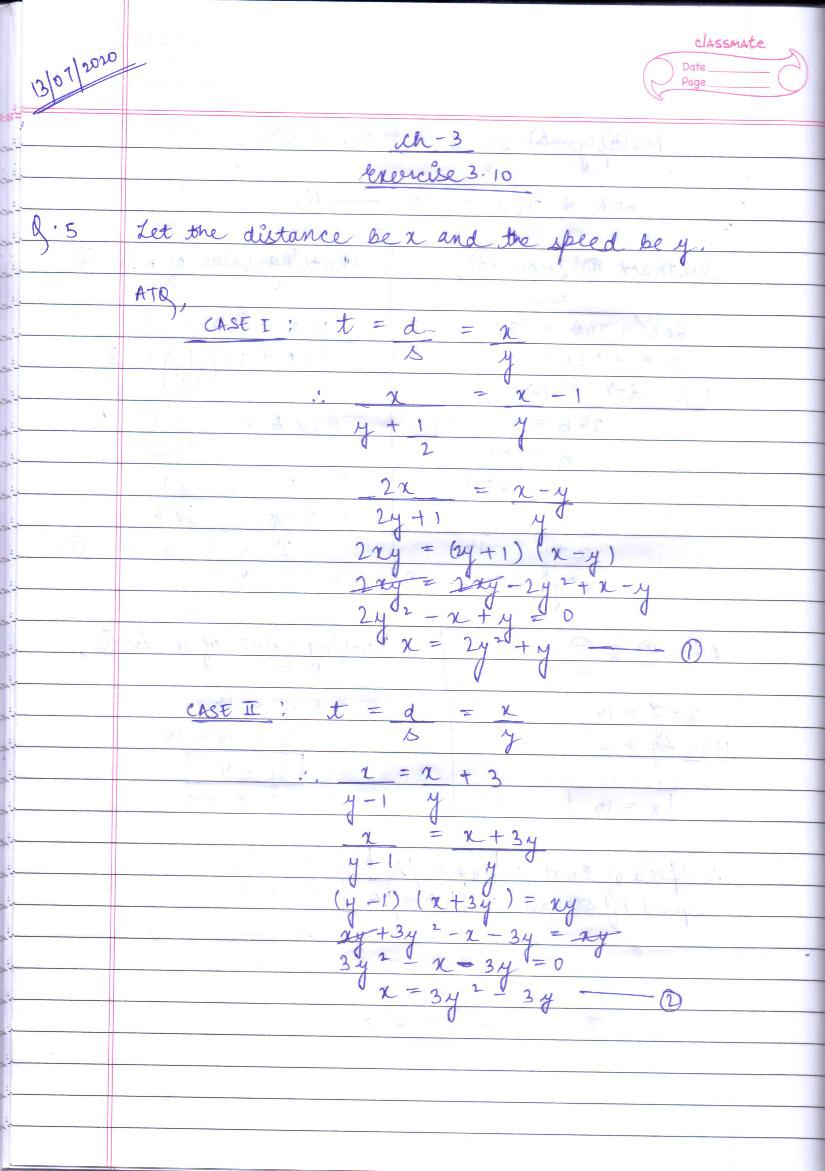 classmate
Date
Page
13/07/2020
Ch - 3
Exercise 3.10
Q.5 Let the distance be x and the speed be y.
ATQ,
CASE I : t = d/s = x/y
∴ x/(y + 1/2) = x/y - 1
2x/(2y+1) = (x-y)/y
2xy = (2y+1) (x-y)
2xy = 2xy - 2y² + x - y
2y² - x + y = 0
x = 2y² + y —— ①
CASE II : t = d/s = x/y
∴ x/(y-1) = x/y + 3
x/(y-1) = (x+3y)/y
(y-1) (x+3y) = xy
xy + 3y² - x - 3y = xy
3y² - x - 3y = 0
x = 3y² - 3y —— ②